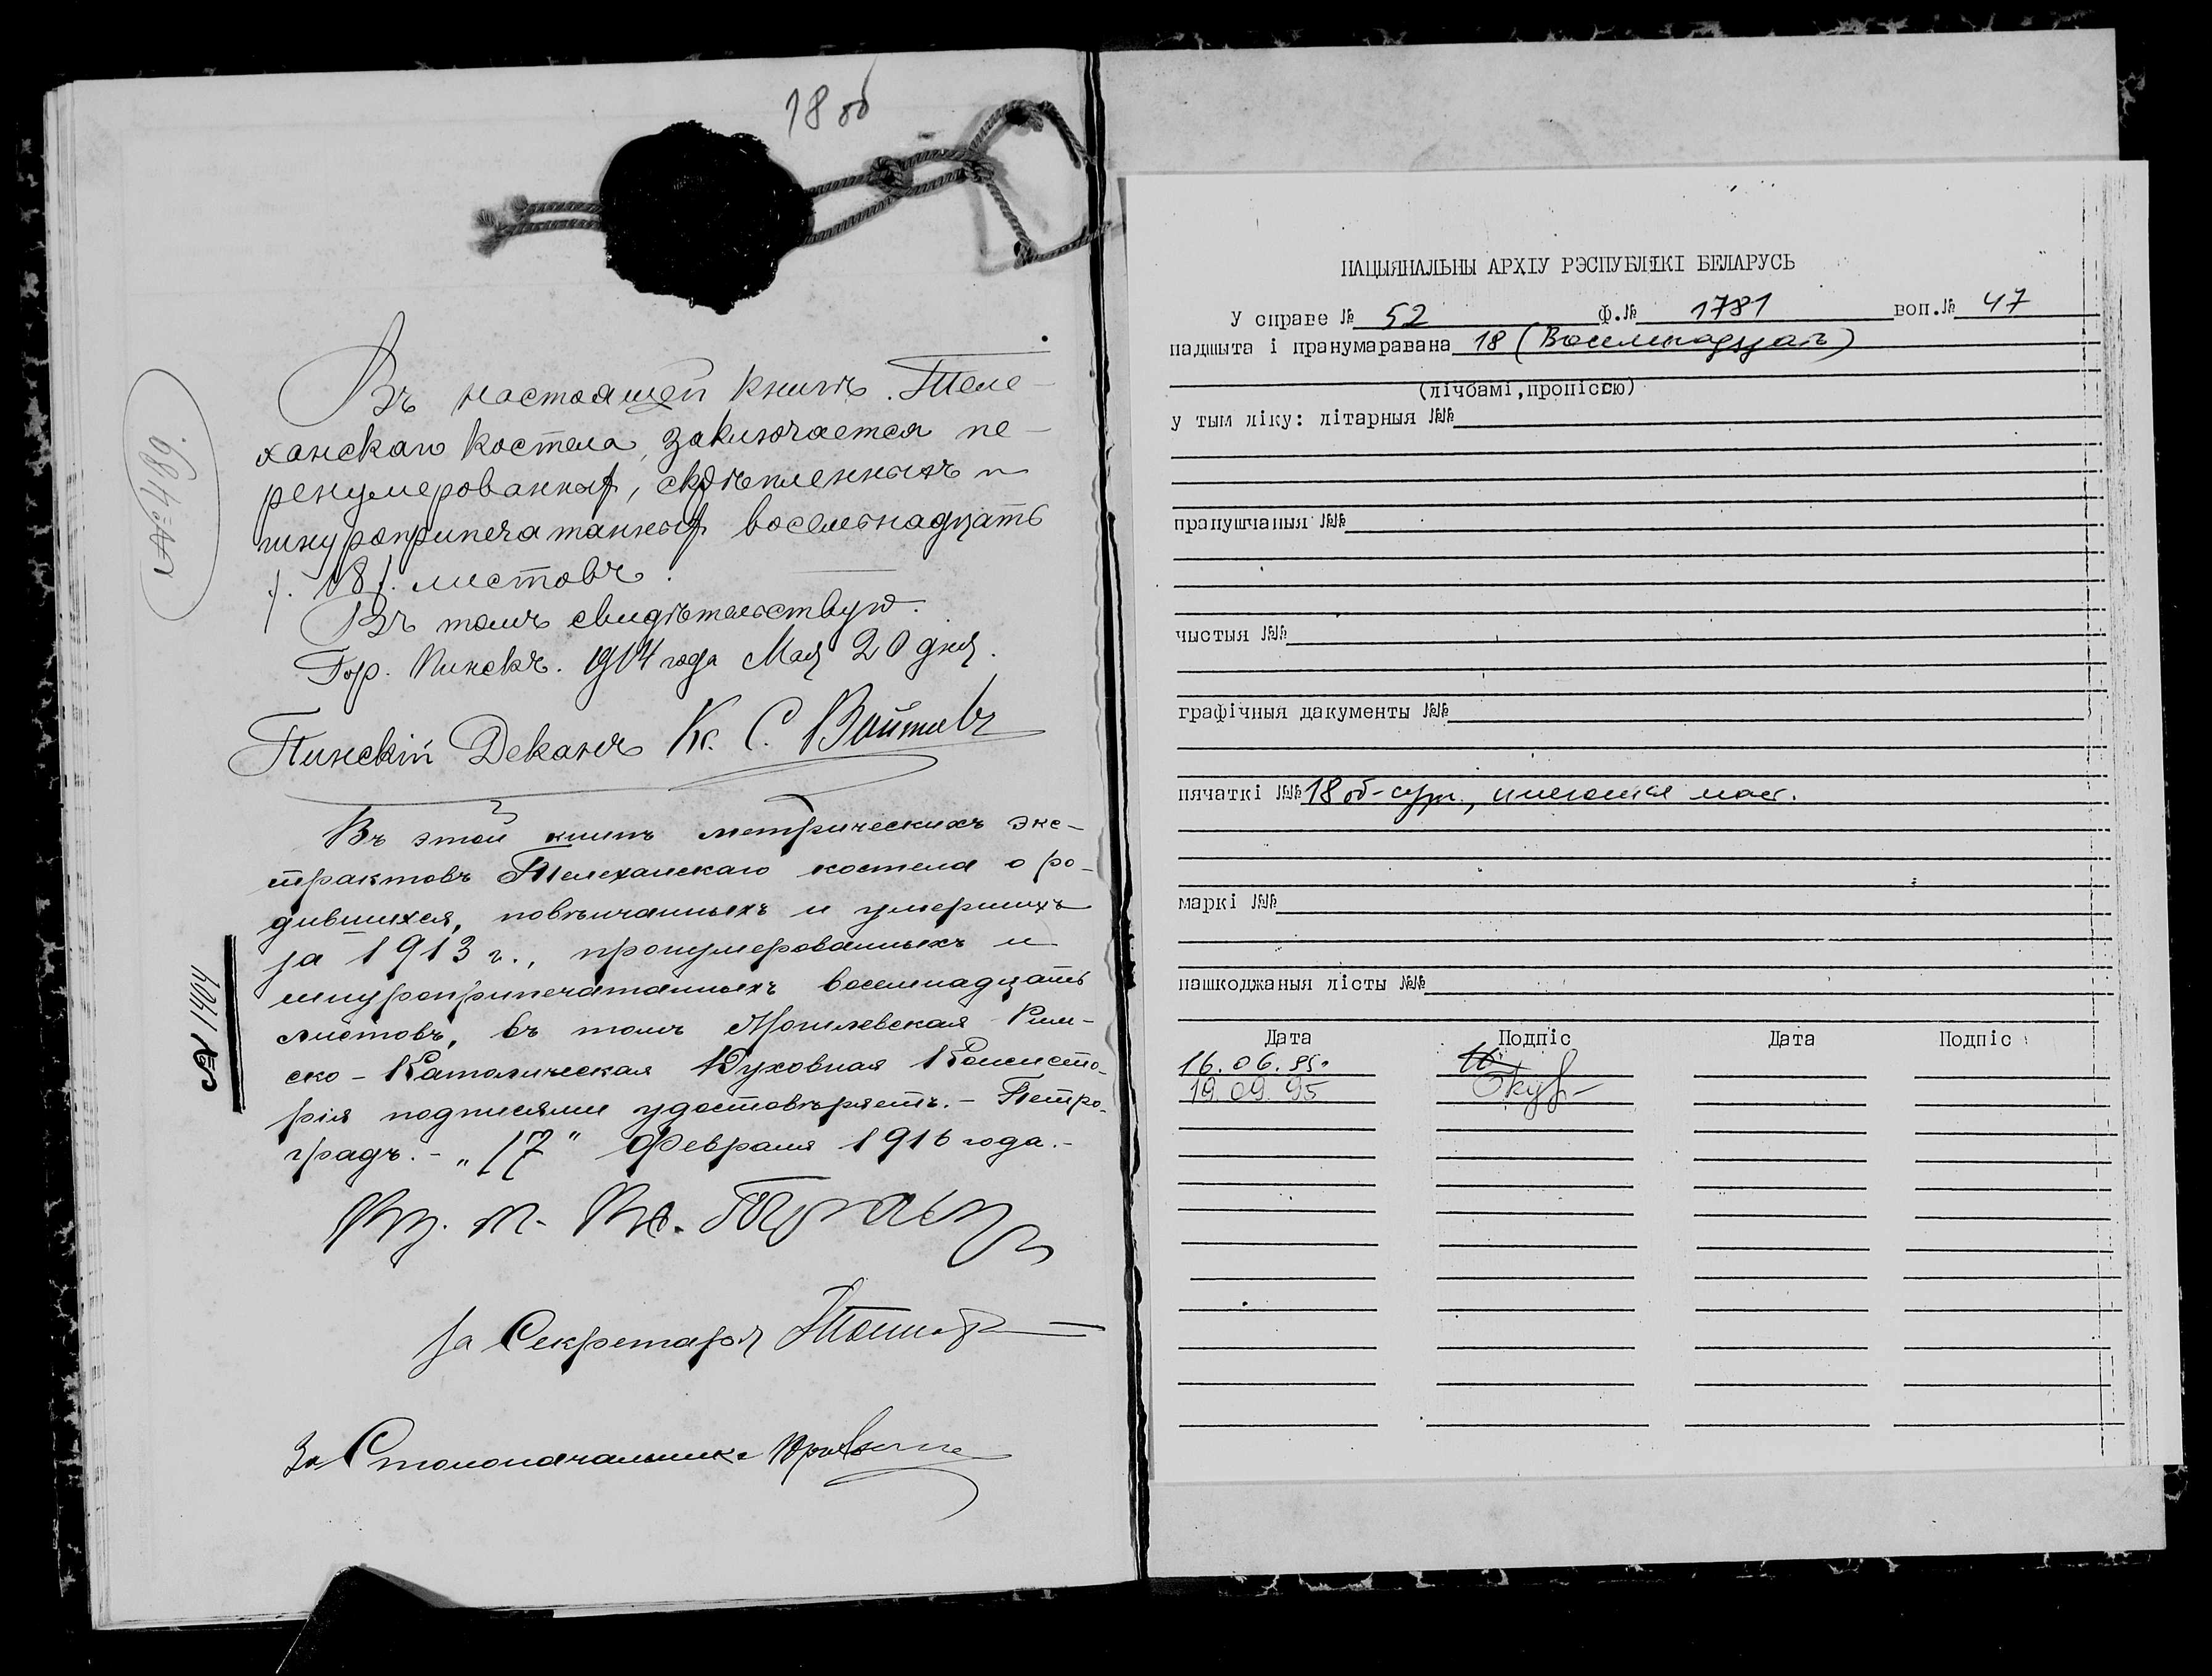 18 об
№ 489.
Въ настоящей книгѣ Теле-
ханскаго костела, заключается пе-
ренумерованныхъ, скрѣпленныхъ и
шнуроприпечатанныхъ восемьнадцать
/. 18 /. листовъ.
Въ томъ свидѣтельствую.
Гор. Пинскъ. 1914 года Мая 20 дня.
Пинскій Деканъ Кс. С. Войтовъ
Въ этой книгѣ метрическихъ экс-
трактовъ Телеханскаго костела о ро-
дившихся, повѣнчанныхъ и умершихъ
за 1913 г., пронумерованныхъ и
шнуроприпечатанныхъ восемнадцать
листовъ, въ томъ Могилевская Рим-
ско-Католическая Духовная Консисто-
рія подписями удостовѣряетъ. - Петро-
градъ. - „17" Февраля 1916 года. -
№ 1404
За Секретаря
За Столоначальника
НАЦЫЯНАЛЬНЫ АРХІУ РЭСПУБЛІКІ БЕЛАРУСЬ
У справе № 52 ф.№ 1781 воп.№ 47
падшыта і пранумаравана 18 (Восемнадцать)
(лічбамі,пропіссю)
у тым ліку: літарныя №№
прапушчаныя №№
чыстыя №№
графічныя дакументы №№
пячаткі №№ 18 об-сург., имеются
маркі №№
пашкоджаныя лісты №№
Дата Подпіс Дата Подпіс
16.06.95.
19.09.95